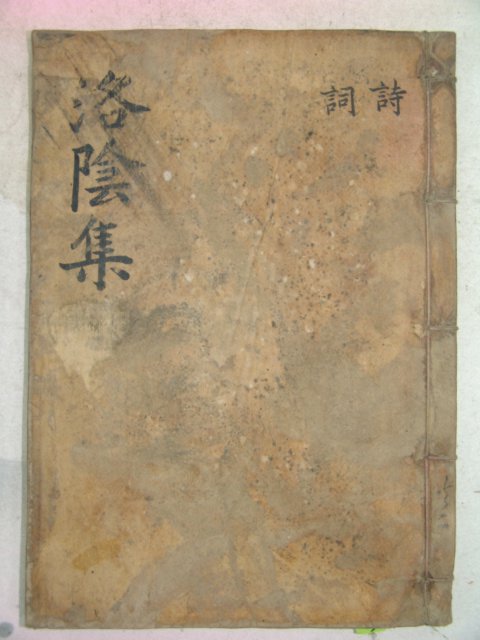 詩
詞
洛陰集